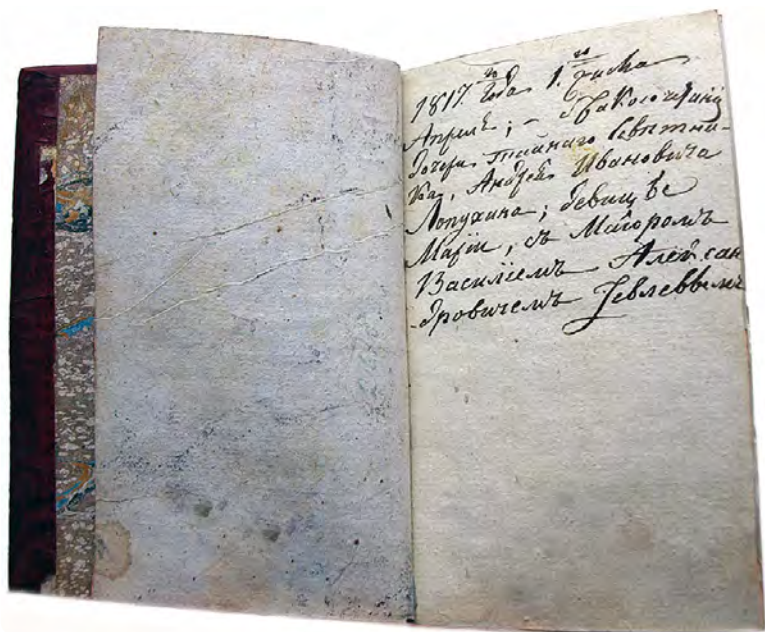 1817.го Года 1.го Числа
Апрелѣ; – Бракосочитаніи
Дочери тайнаго Совѣтни-
ка, Андрея Ивановича
Лопухина; девицѣе
Маріи, съ Маіоромъ
Василіемъ Алексан
дровичемъ Іевлеввымъ